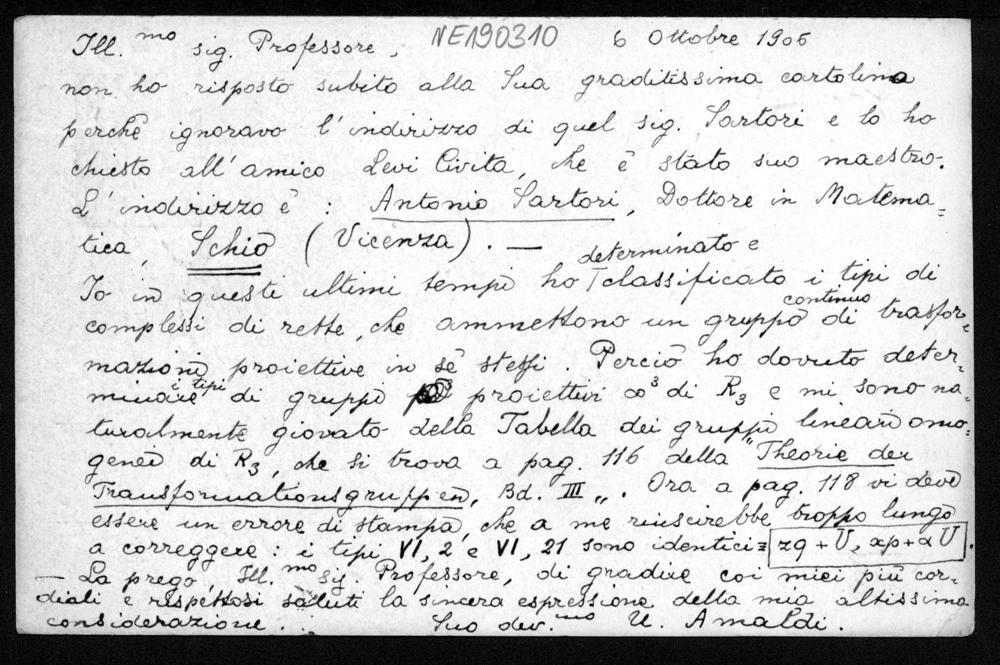 NE190310
6 Ottobre 1906
Ill.mo sig. Professore,
non ho risposto subito alla Sua graditissima cartolina
perchè ignoravo l'indirizzo di quel sig. Sartori e lo ho
chiesto all'amico Levi Civita, che è stato suo maestro.
L'indirizzo è : Antonio Sartori, Dottore in Matema=
tica, Schio (Vicenza). —
Io in questi ultimi tempi ho determinato e classificato i tipi di
complessi di rette, che ammettono un gruppo continuo di trasfor=
mazioni proiettive in sè stessi. Perciò ho dovuto deter=
minare i tipi di gruppi proiettivi ∞³ di R₃ e mi sono na=
turalmente giovato della Tabella dei gruppi lineari omo=
genei di R₃, che si trova a pag. 116 della "Theorie der
Transformationsgruppen, Bd. III„. Ora a pag. 118 vi deve
essere un errore di stampa, che a me riuscirebbe troppo lungo
a correggere : i tipi VI, 2 e VI, 21 sono identici = zq + U, xp + αU.
— La prego, Ill.mo Sig. Professore, di gradire coi miei più cor=
diali e rispettosi saluti la sincera espressione della mia altissima
considerazione. Suo dev.mo U. Amaldi.